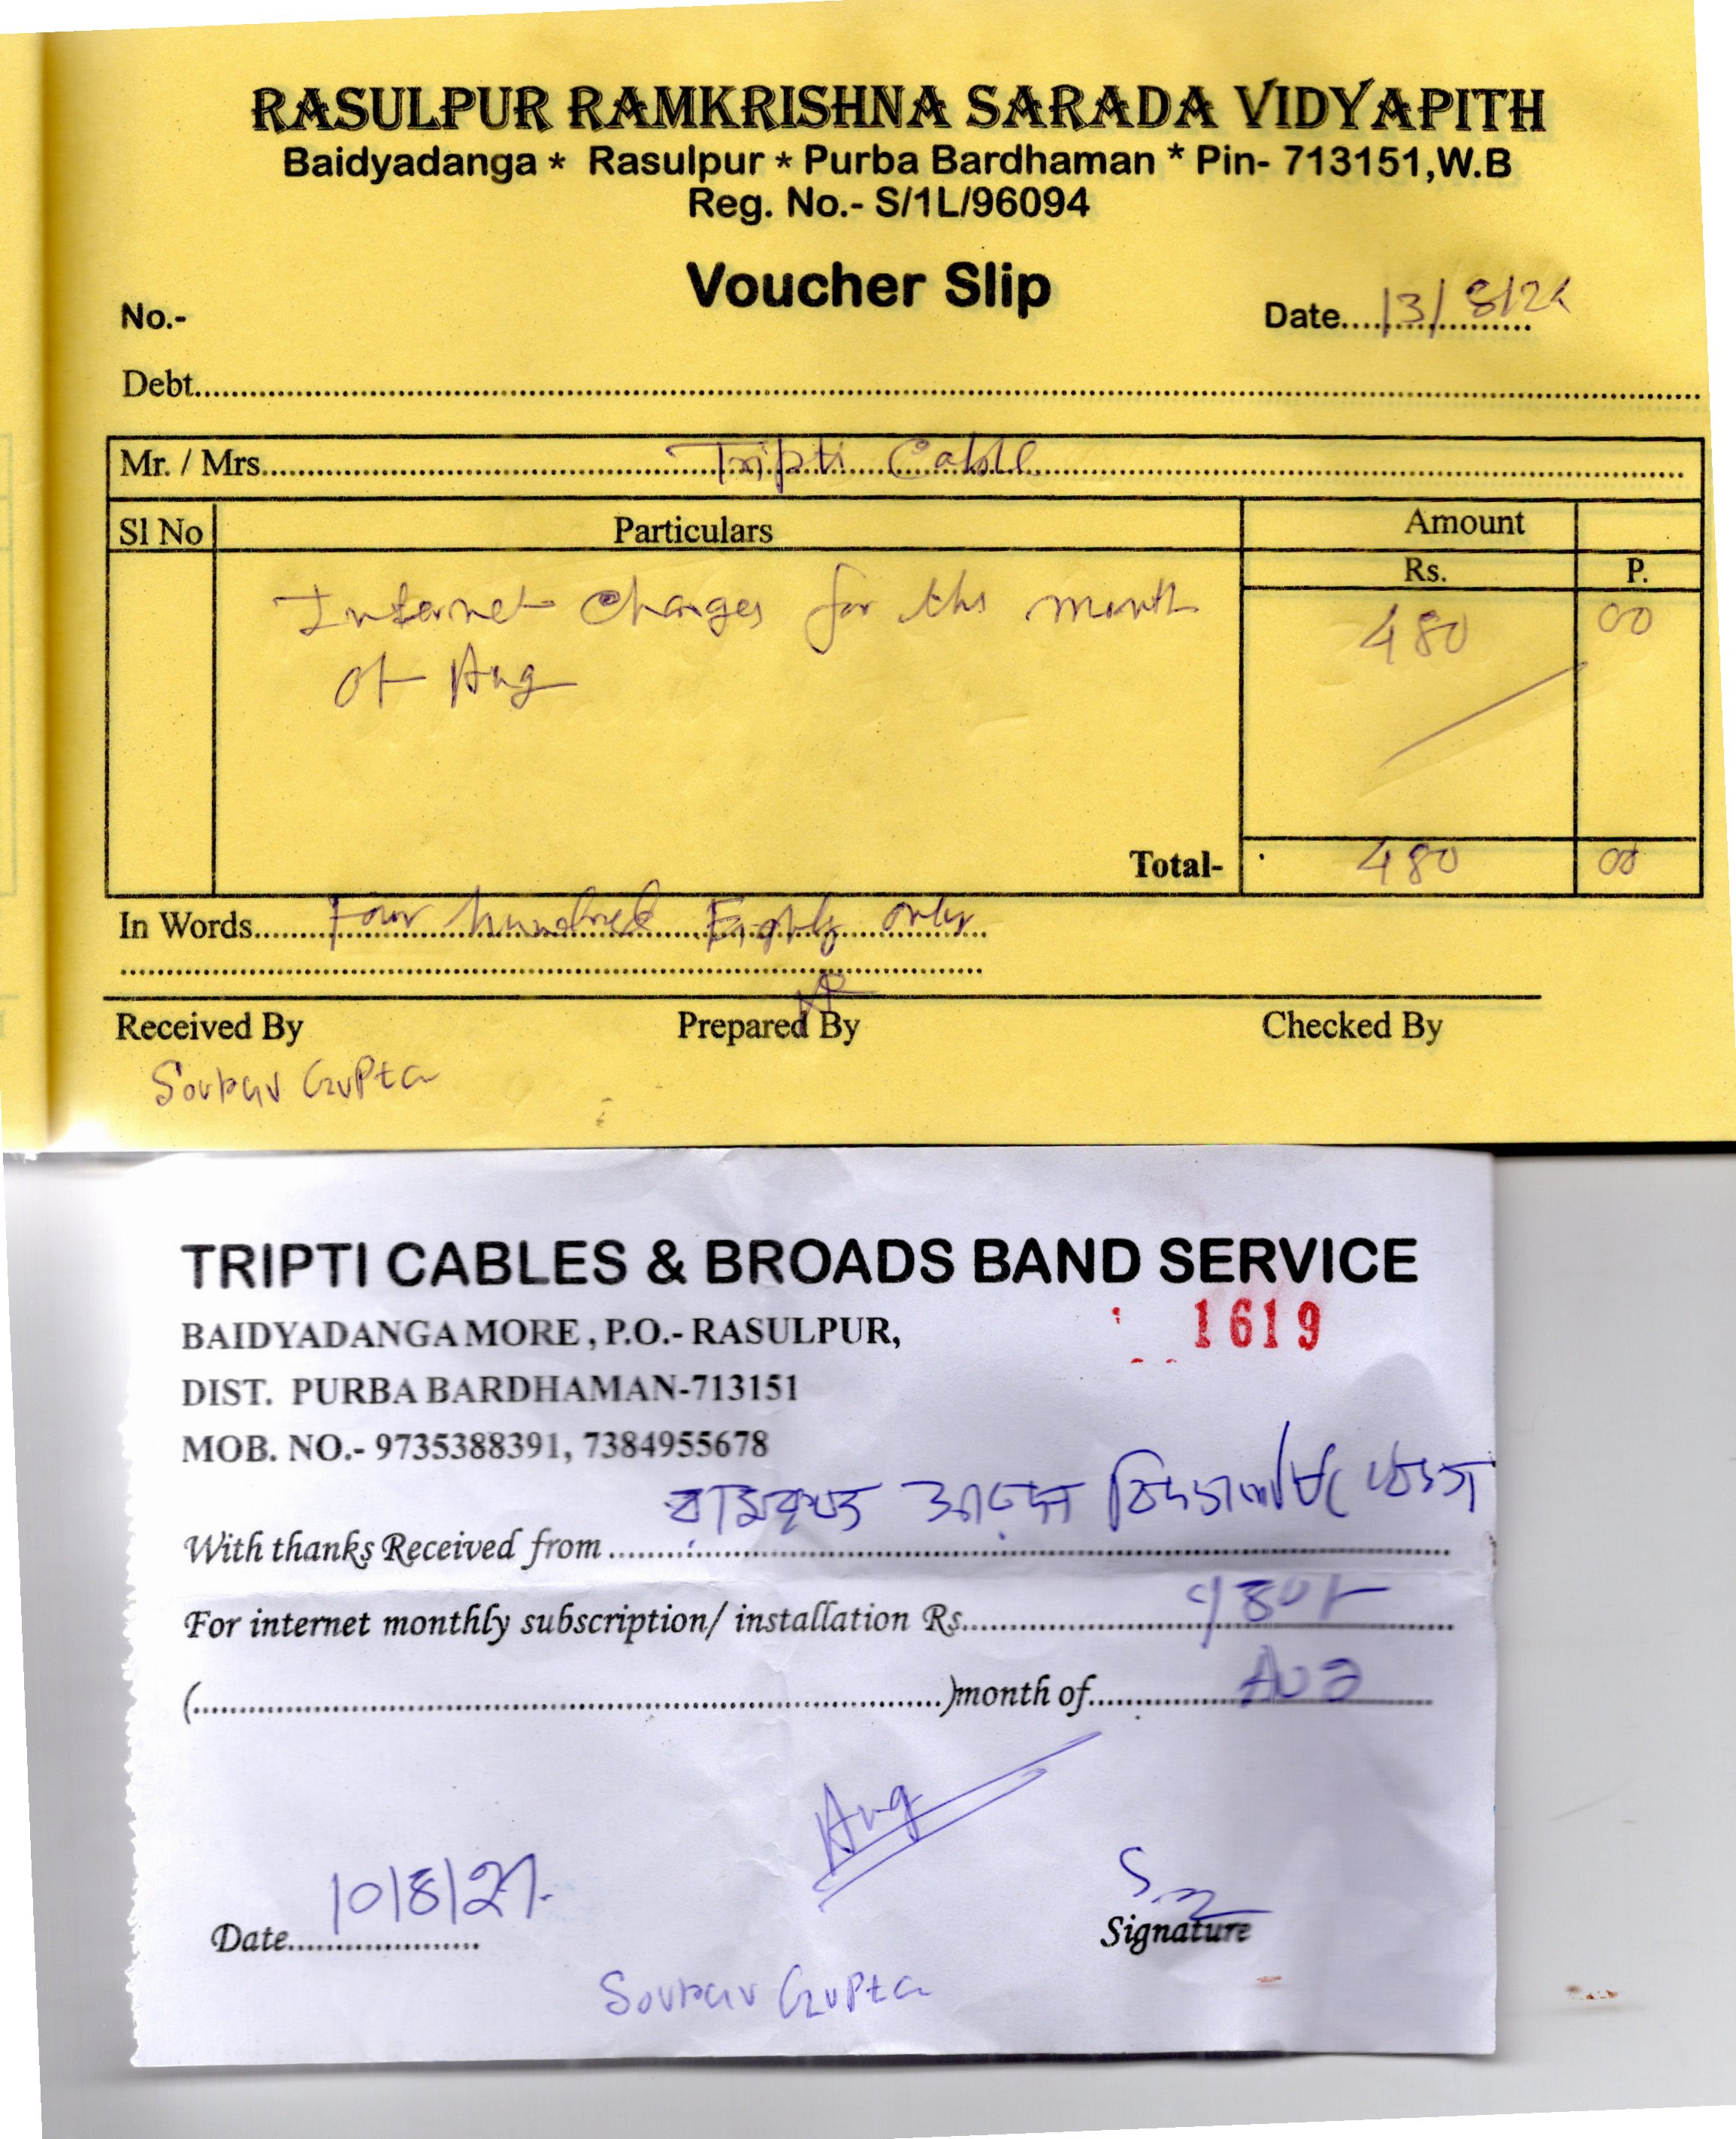 RASULPUR RAMKRISHNA SARADA VIDYAPITH
Baidyadanga * Rasulpur * Purba Bardhaman * Pin- 713151,W.B
Reg. No.- S/1L/96094
Voucher Slip
No.-
Date....13/8/24
Debt
Mr. / Mrs. Tripti Cable
Sl No Particulars Amount
Rs. P.
Internet Charges for the month 480 00
of Aug
Total- 480 00
In Words Four hundred Eighty only
Received By Prepared By Checked By
Sourav Gupta
TRIPTI CABLES & BROADS BAND SERVICE
1619
BAIDYADANGA MORE, P.O.- RASULPUR,
DIST. PURBA BARDHAMAN-713151
MOB. NO.- 9735388391, 7384955678
With thanks Received from রামকৃষ্ণ
For internet monthly subscription/ installation Rs. 480/-
( )month of Aug
Aug
Date 10/8/24
Signature
Sourav Gupta